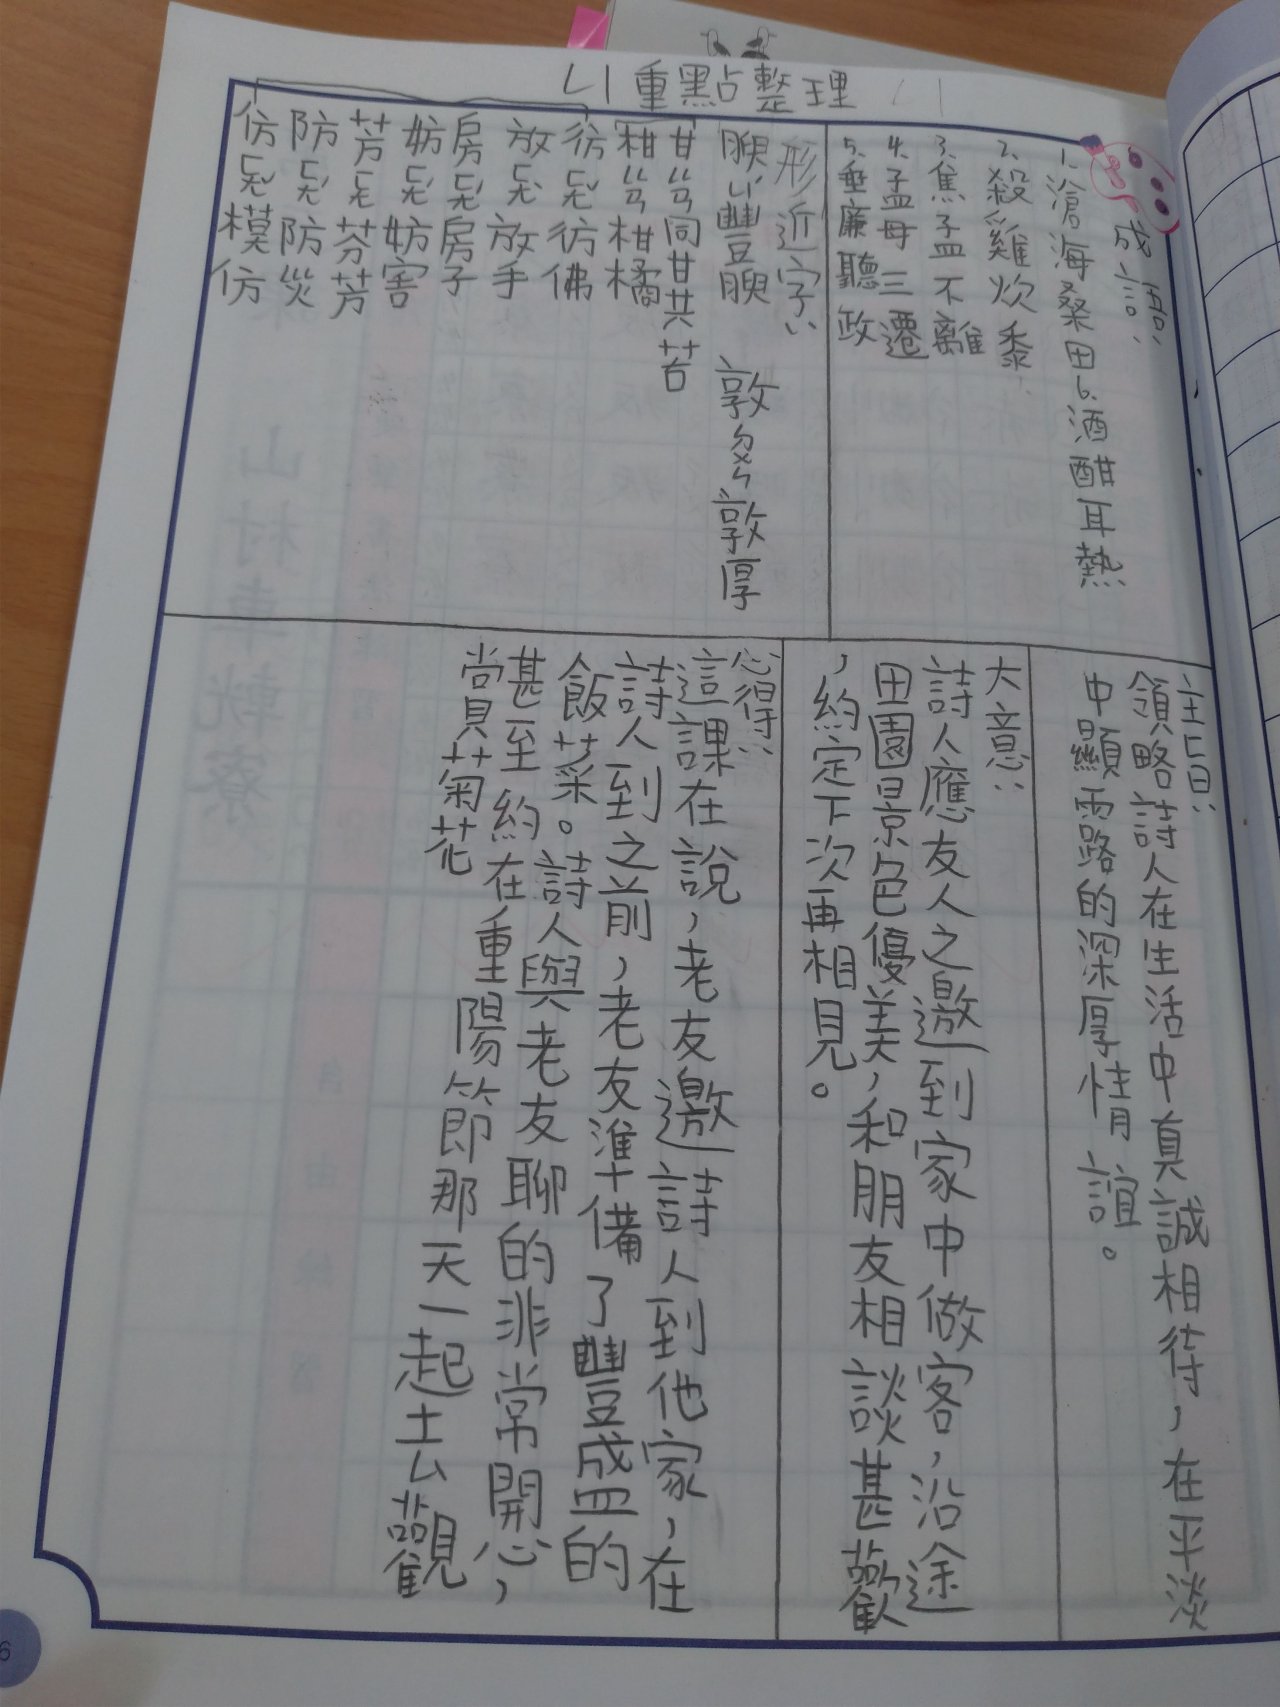 L1重點整理
成語：
1.滄海桑田6.酒酣耳熱
2.殺雞炊黍
3.焦孟不離
4.孟母三遷
5.垂廉聽政
形近字：
腴ㄩˊ豐腴 敦ㄉㄨㄣ敦厚
甘ㄍㄢ同甘共苦
柑ㄍㄢ柑橘
彷ㄈㄤˇ彷彿
放ㄈㄤˋ放手
房ㄈㄤˊ房子
妨ㄈㄤˊ妨害
芳ㄈㄤ芬芳
防ㄈㄤˊ防災
仿ㄈㄤˇ模仿
主旨：
領略詩人在生活中真誠相待，在平淡
中顯露的深厚情誼。
大意：
詩人應友人之邀到家中做客，沿途
田園景色優美，和朋友相談甚歡
，約定下次再相見。
心得：
這課在說，老友邀詩人到他家，在
詩人到之前，老友準備了豐盛的
飯菜。詩人與老友聊的非常開心，
甚至約在重陽節那天一起去觀
賞菊花
6